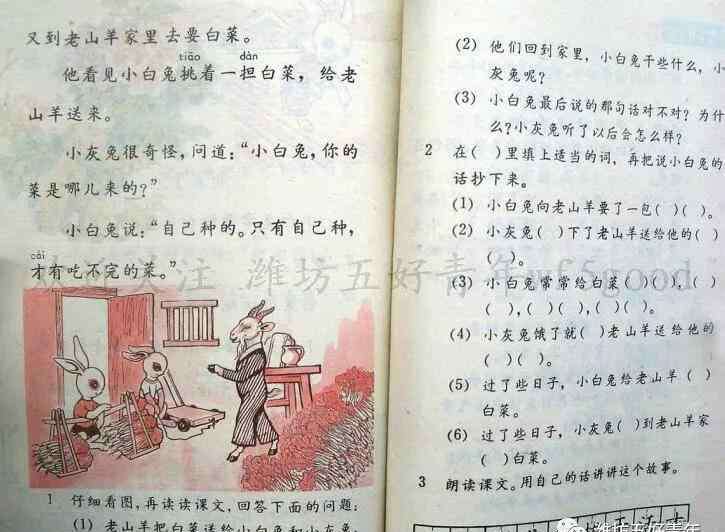 又到老山羊家里去要白菜。
tiāo dàn
他看见小白兔挑着一担白菜，给老
山羊送来。
小灰兔很奇怪，问道：“小白兔，你的
菜是哪儿来的？”
小白兔说：“自己种的。只有自己种，
cái
才有吃不完的菜。”
关注 潍坊五好青年wf5good
1 仔细看图，再读读课文，回答下面的问题：
(1) 老山羊把白菜送给小白兔和小灰兔，
(2) 他们回到家里，小白兔干些什么，小
灰兔呢？
(3) 小白兔最后说的那句话对不对？为什
么？小灰兔听了以后会怎么样？
2 在( )里填上适当的词，再把说小白兔的
话抄下来。
(1) 小白兔向老山羊要了一包( )( )。
(2) 小灰兔( )下了老山羊送给他的( )
( )。
(3) 小白兔常常给白菜( )( )，( )
( )，( )( )，( )( )。
(4) 小灰兔饿了就( )老山羊送给他的
( )( )。
(5) 过了些日子，小白兔给老山羊( )
白菜。
(6) 过了些日子，小灰兔( )到老山羊家
( )白菜。
3 朗读课文。用自己的话讲讲这个故事。
潍坊五好青年